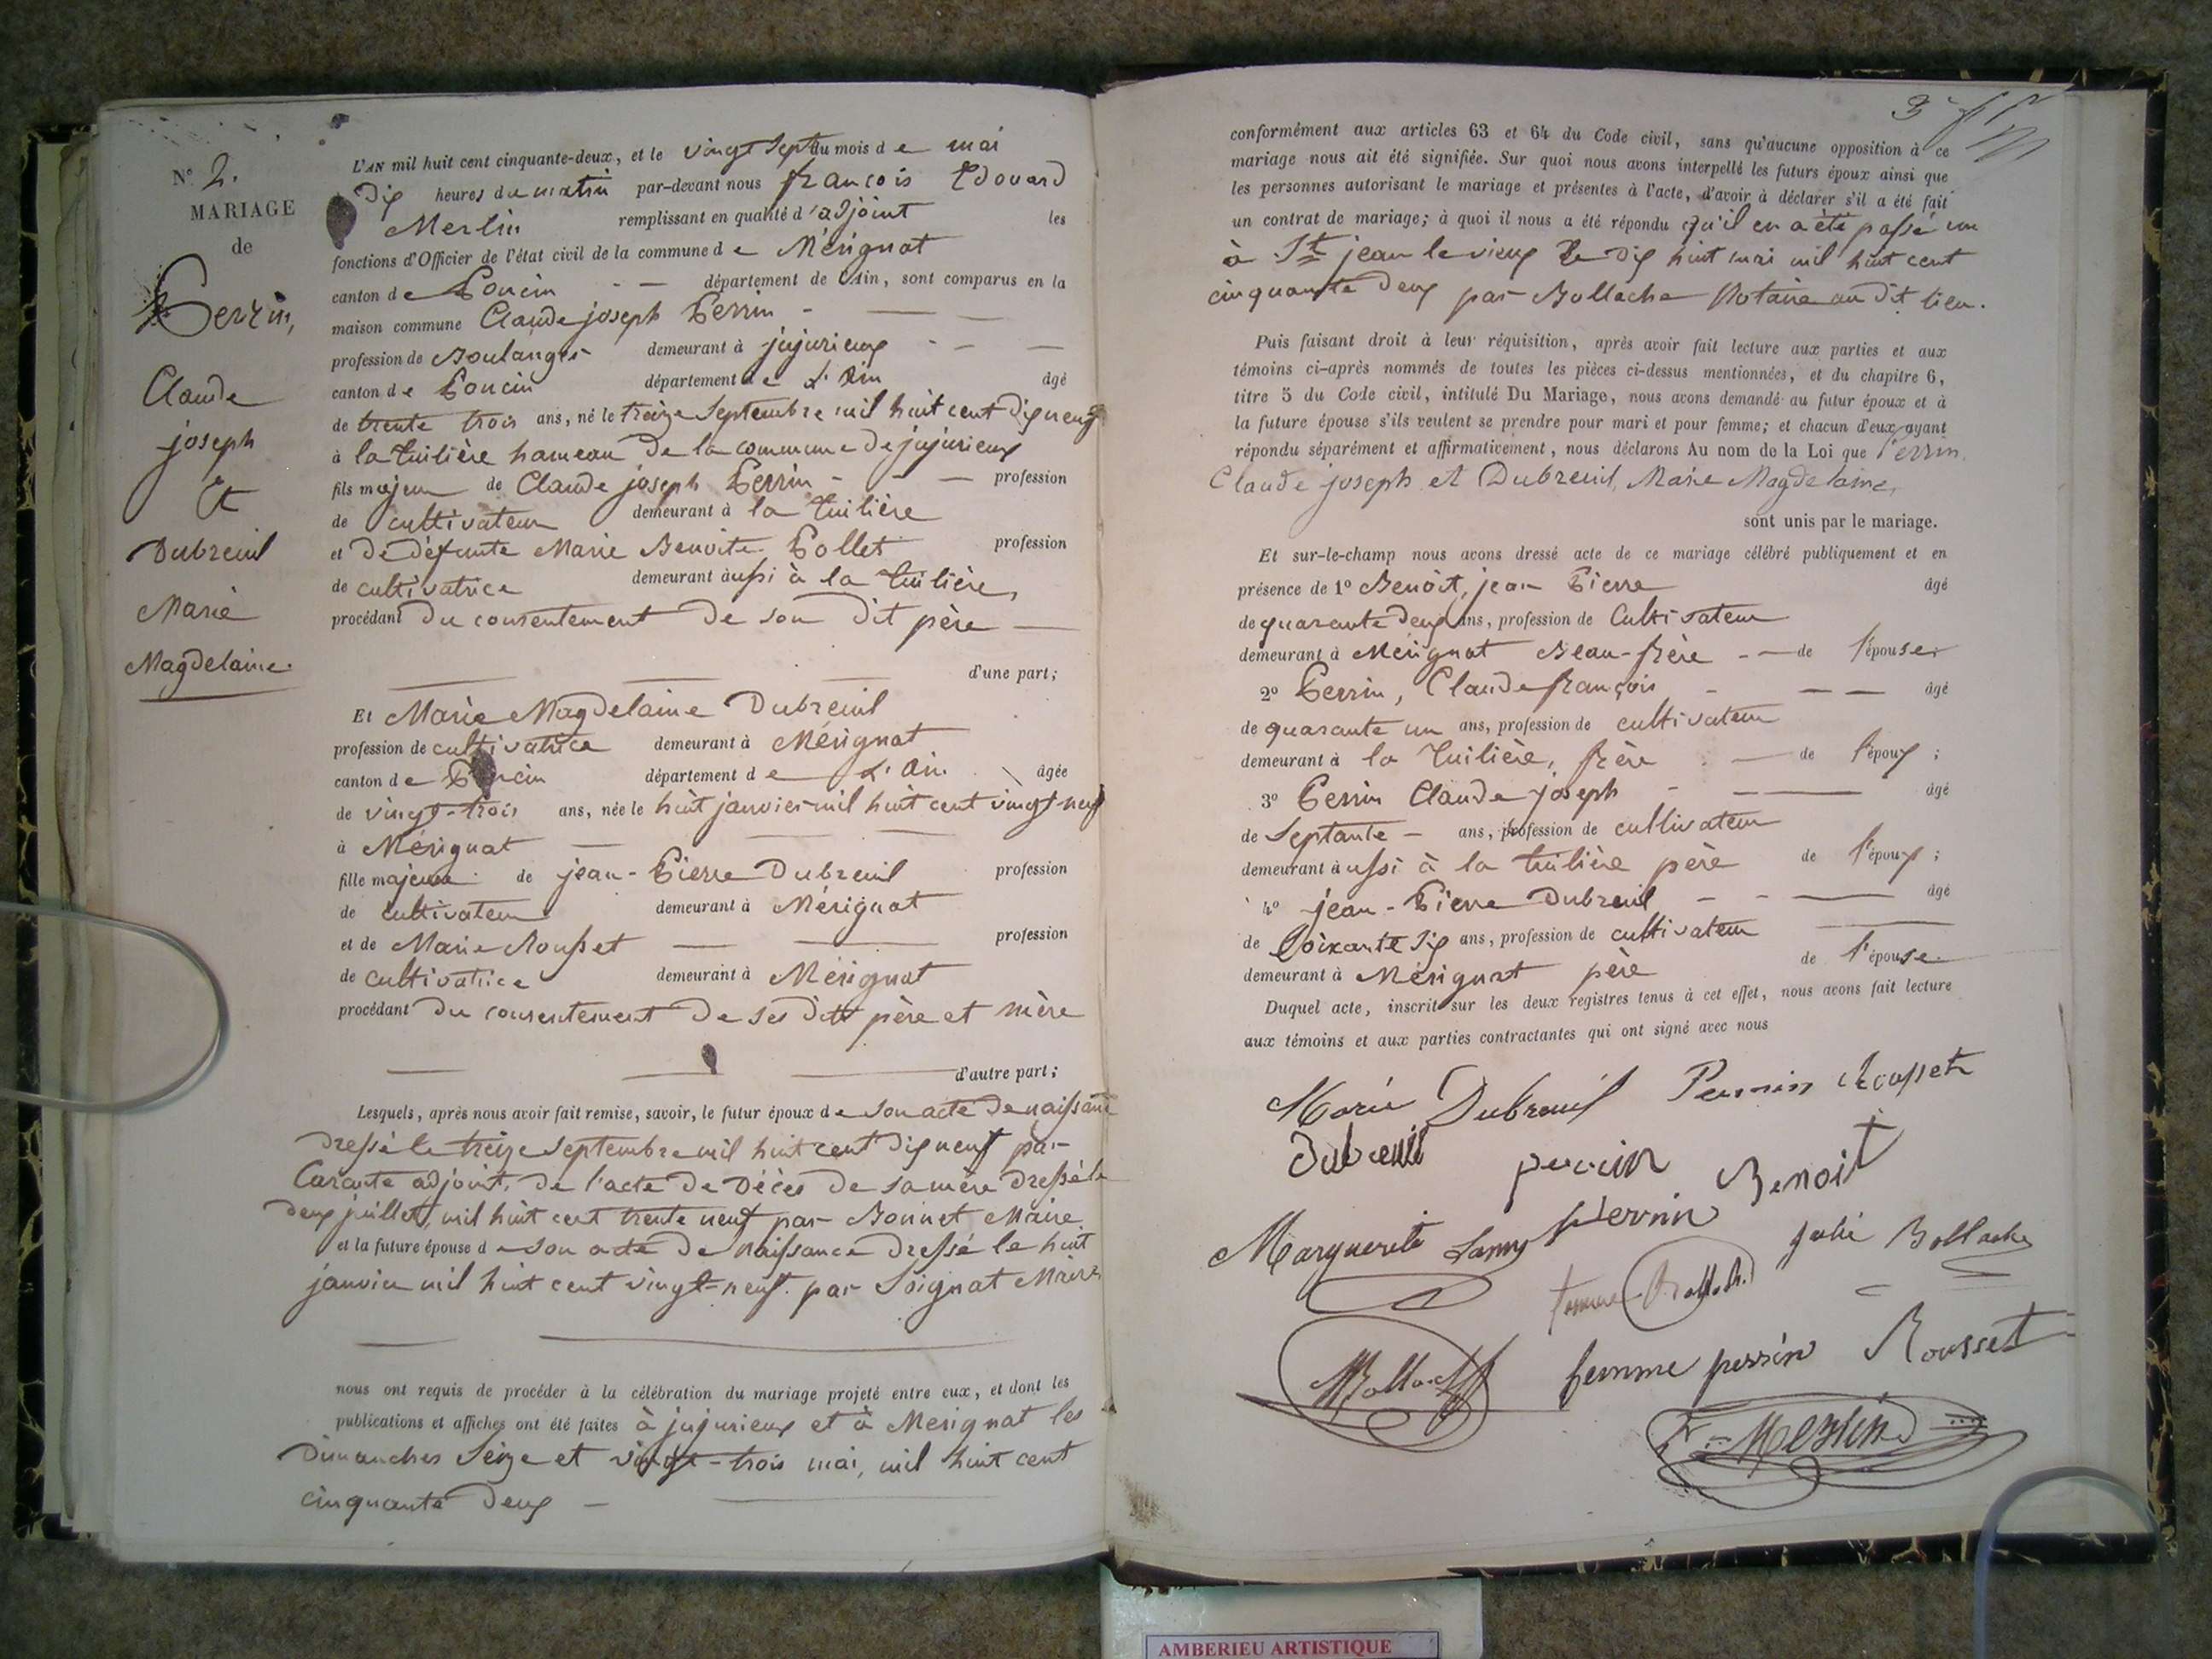 N° 2.
MARIAGE
de
Perrin,
Claude
joseph
Et
Dubreuil
Marie
Magdelaine
L'AN mil huit cent cinquante-deux, et le vingt sept du mois de mai
Dix heures du matin par-devant nous françois Edouard
Merlin remplissant en qualité d'adjoint les
fonctions d'Officier de l'état civil de la commune de Mérignat
canton de Poncin département de l'Ain, sont comparus en la
maison commune Claude joseph Perrin
profession de Boulanger demeurant à jujurieux
canton de Poncin département de L'Ain âgé
de trente trois ans, né le treize Septembre mil huit cent dix neuf
à la tuilière hameau de la commune de jujurieux
fils majeur de Claude joseph Perrin profession
de cultivateur demeurant à la tuilière
et de défunte Marie Benoite Pollet profession
de cultivatrice demeurant aussi à la tuilière,
procédant du consentement de son dit père
d'une part;
Et Marie Magdelaine Dubreuil
profession de cultivatrice demeurant à Mérignat
canton de Poncin département de L'Ain âgée
de vingt-trois ans, née le huit janvier mil huit cent vingt-neuf
à Mérignat
fille majeure de jean-Pierre Dubreuil profession
de cultivateur demeurant à Mérignat
et de Marie Rousset profession
de cultivatrice demeurant à Mérignat
procédant du consentement de ses dits père et mère
d'autre part;
Lesquels, après nous avoir fait remise, savoir, le futur époux de son acte de naissance
dressé le treize septembre mil huit cent dix neuf par
adjoint, de l'acte de Décès de sa mère dressé le
deux juillet, mil huit cent trente neuf par Bonnet Maire
et la future épouse de son acte de naissance dressé le huit
janvier mil huit cent vingt-neuf. par Soignat Maire
nous ont requis de procéder à la célébration du mariage projeté entre eux, et dont les
publications et affiches ont été faites à jujurieux et à Merignat les
Dimanches Seize et vingt-trois mai, mil huit cent
cinquante deux
3
conformément aux articles 63 et 64 du Code civil, sans qu'aucune opposition à ce
mariage nous ait été signifiée. Sur quoi nous avons interpellé les futurs époux ainsi que
les personnes autorisant le mariage et présentes à l'acte, d'avoir à déclarer s'il a été fait
un contrat de mariage; à quoi il nous a été répondu qu'il en a été passé un
à St jean le vieux le dix huit mai mil huit cent
cinquante deux par Bollache Notaire au dit lieu.
Puis faisant droit à leur réquisition, après avoir fait lecture aux parties et aux
témoins ci-après nommés de toutes les pièces ci-dessus mentionnées, et du chapitre 6,
titre 5 du Code civil, intitulé Du Mariage, nous avons demandé au futur époux et à
la future épouse s'ils veulent se prendre pour mari et pour femme; et chacun d'eux ayant
répondu séparément et affirmativement, nous déclarons Au nom de la Loi que Perrin
Claude joseph et Dubreuil, Marie Magdelaine,
sont unis par le mariage.
Et sur-le-champ nous avons dressé acte de ce mariage célébré publiquement et en
présence de 1° Benoit, jean Pierre âgé
de quarante deux ans, profession de Cultivateur
demeurant à Mérignat Beau-frère de l'épouse;
2° Perrin, Claude françois âgé
de quarante un ans, profession de cultivateur
demeurant à la tuilière, frère de l'époux;
3° Perrin Claude joseph âgé
de Septante ans, profession de cultivateur
demeurant aussi à la tuilière père de l'époux;
4° jean-Pierre Dubreuil âgé
de Soixante Six ans, profession de cultivateur
demeurant à Mérignat père de l'épouse.
Duquel acte, inscrit sur les deux registres tenus à cet effet, nous avons fait lecture
aux témoins et aux parties contractantes qui ont signé avec nous
Marie Dubreuil Perrin Rousset
Dubreuil perrin Benoit
Marguerite Lamy perrin julie Bollache
femme Bollache
Bollache femme perrin Rousset
Merlin
AMBERIEU ARTISTIQUE